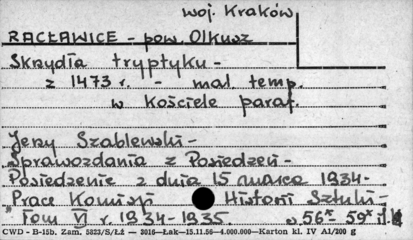 woj. Kraków
RACŁAWICE - pow. Olkusz
Skrzydła tryptyku -
z 1473 r. - mal. temp.
w kościele paraf.
Jerzy Szablewski -
„Sprawozdania z Posiedzeń -
Posiedzenie z dnia 15 marca 1934 -
„Prace Komisji Historii Sztuki -
Tom VI r. 1934-1935. s. 56* - 59*
CWD - B-15b. Zam. 5823/S/ŁŻ — 3016—Łak—15.11.56—4.000.000—Karton kl. IV A1/200 g